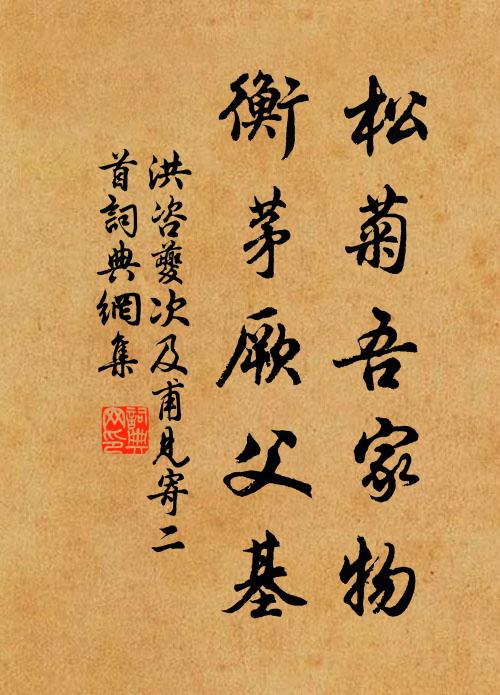 松菊吾家物
衡茅厥父基
洪咨夔次及甫見寄二
首詞典網集
詞典
网印